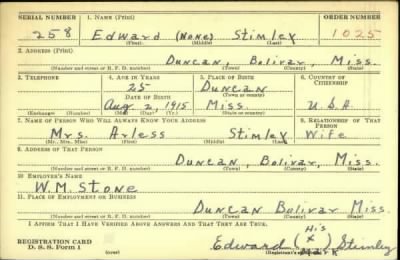 SERIAL NUMBER 1. NAME (Print) ORDER NUMBER
258 Edward (None) Stimley 1025
(First) (Middle) (Last)
2. ADDRESS (Print)
Duncan, Bolivar, Miss.
(Number and street or R. F. D. number) (Town) (County) (State)
3. TELEPHONE 4. AGE IN YEARS 5. PLACE OF BIRTH 6. COUNTRY OF CITIZENSHIP
25 Duncan
DATE OF BIRTH (Town or county)
Aug 2, 1915 Miss. U.S.A
(Exchange) (Number) (Mo.) (Day) (Yr.) (State or country)
7. NAME OF PERSON WHO WILL ALWAYS KNOW YOUR ADDRESS 8. RELATIONSHIP OF THAT PERSON
Mrs. Arless Stimley Wife
(Mr., Mrs., Miss) (First) (Middle) (Last)
9. ADDRESS OF THAT PERSON
Duncan, Bolivar, Miss.
(Number and street or R. F. D. number) (Town) (County) (State)
10. EMPLOYER'S NAME
W.M. Stone
11. PLACE OF EMPLOYMENT OR BUSINESS
Duncan Bolivar Miss.
(Number and street or R. F. D. number) (Town) (County) (State)
I AFFIRM THAT I HAVE VERIFIED ABOVE ANSWERS AND THAT THEY ARE TRUE.
His
REGISTRATION CARD Edward (X) Stimley
D. S. S. Form 1 (over) (Registrant's signature) Mark